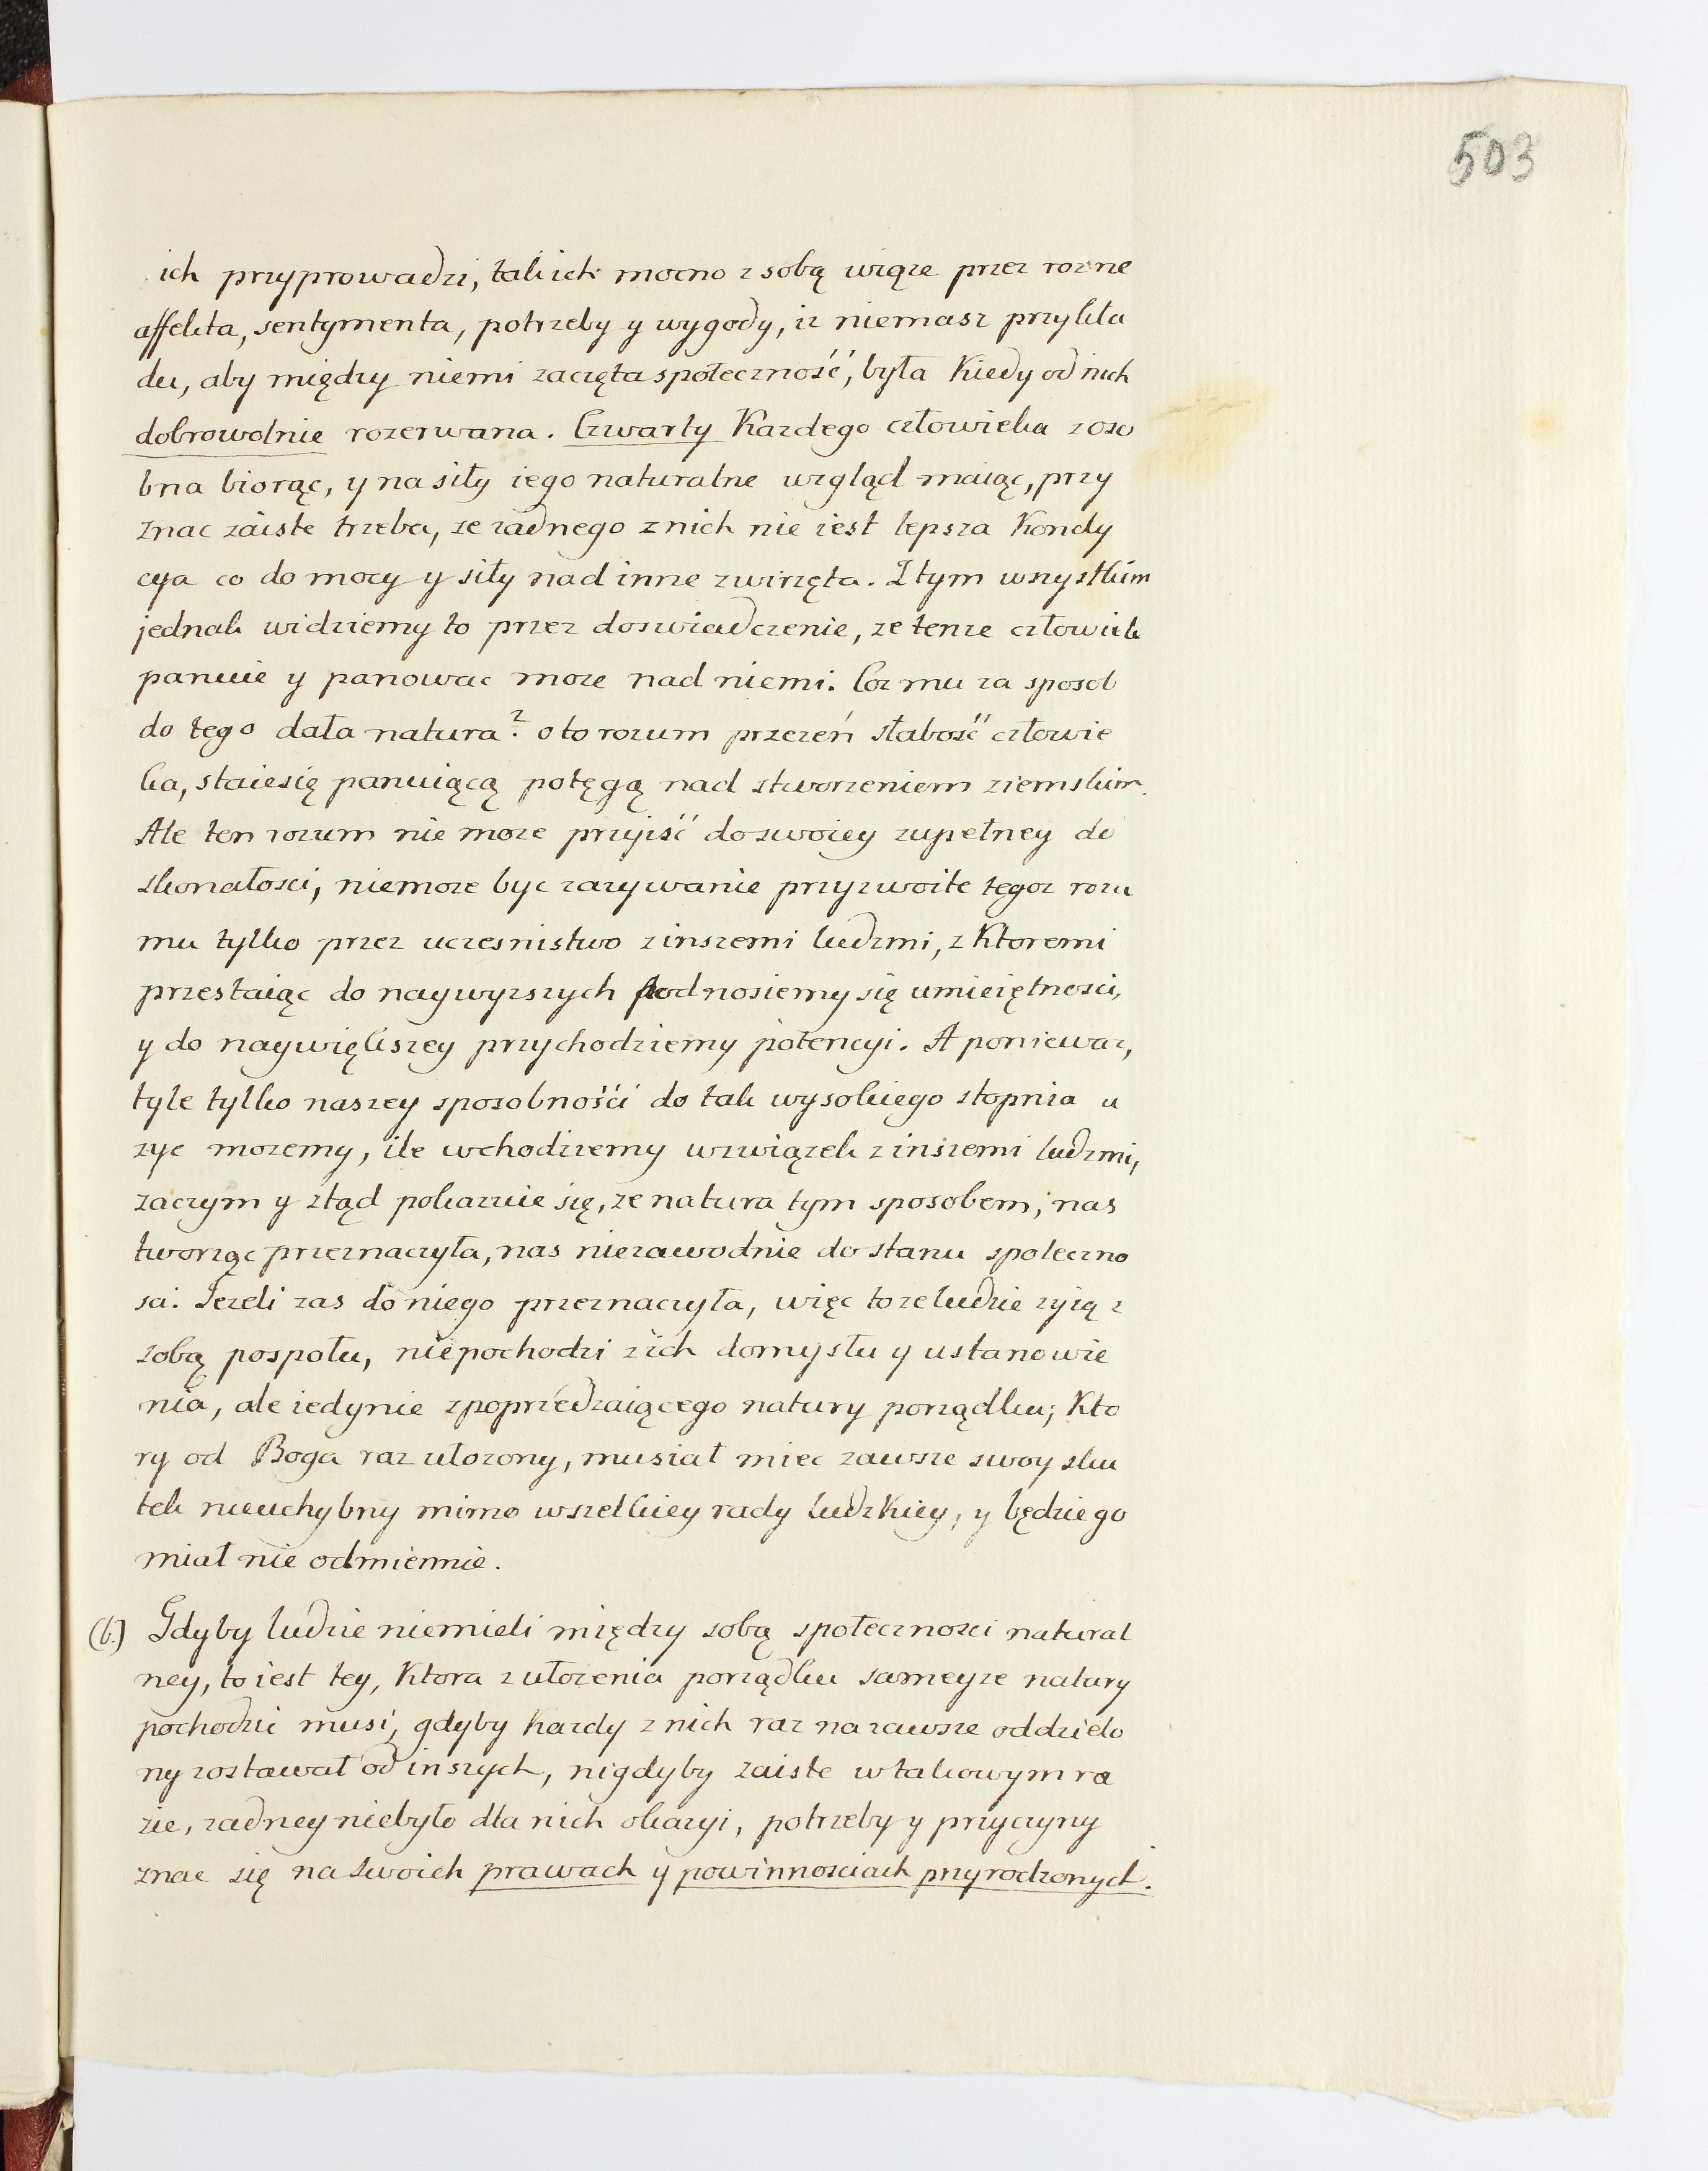 503
ich przyprowadzi, tak ich mocno z sobą wiąze przez rozne
affekta, sentymenta, potrzeby y wygody, iz niemasz przykła
du, aby między niemi zaczęta społeczność, była kiedy od nich
dobrowolnie rozerwana. Czwarty Kazdego człowieka z oso
bna biorąc, y na siły iego naturalne wzgląd maiąc, przy
znac zaiste trzeba, ze zadnego z nich nie iest lepsza Kondy
cya co do mocy y siły nad inne zwirzęta. Z tym wszystkim
jednak widziemy to przez doswiadczenie, ze tenze człowiek
panuie y panowac moze nad niemi. Coz mu za sposob
do tego dała natura? oto rozum przezeń słabość człowie
ka, staie się panuiącą potęgą nad stworzeniem ziemskim.
Ale ten rozum nie moze przyiść do swoiey zupełney do
skonałosci, niemoze byc zazywanie przyzwoite tegoz rozu
mu tylko przez uczesnistwo z inszemi ludzmi, z Ktoremi
przestaiąc do naywyzszych podnosiemy się umieiętnosci,
y do naywiększey przychodziemy potencyi. A poniewaz,
tyle tylko naszey sposobności do tak wysokiego stopnia u
zyc mozemy, ile wchodziemy w związek z inszemi ludzmi,
zaczym y ztąd pokazuie się, ze natura tym sposobem, nas
tworząc przeznaczyła, nas niezawodnie do stanu spoleczno
sci. Jezeli zas do niego przeznaczyła, więc to ze ludzie zyią z
sobą pospołu, niepochodzi z ich domysłu y ustanowie
nia, ale iedynie z poprzedzaiącego natury porządku; Kto
ry od Boga raz ułozony, musiał miec zawsze swoy sku
tek nieuchybny mimo wszelkiey rady ludzkiey, y będzie go
miał nie odmiennie.
(b.) Gdyby ludzie niemieli między sobą społecznosci natural
ney, to iest tey, Ktora z ułozenia porządku sameyze natury
pochodzic musi, gdyby kazdy z nich raz na zawsze oddzielo
ny zostawał od inszych, nigdyby zaiste w takowym ra
zie, zadney niebyło dla nich okazyi, potrzeby y przyczyny
znac się na swoich prawach y powinnosciach przyrodzonych.